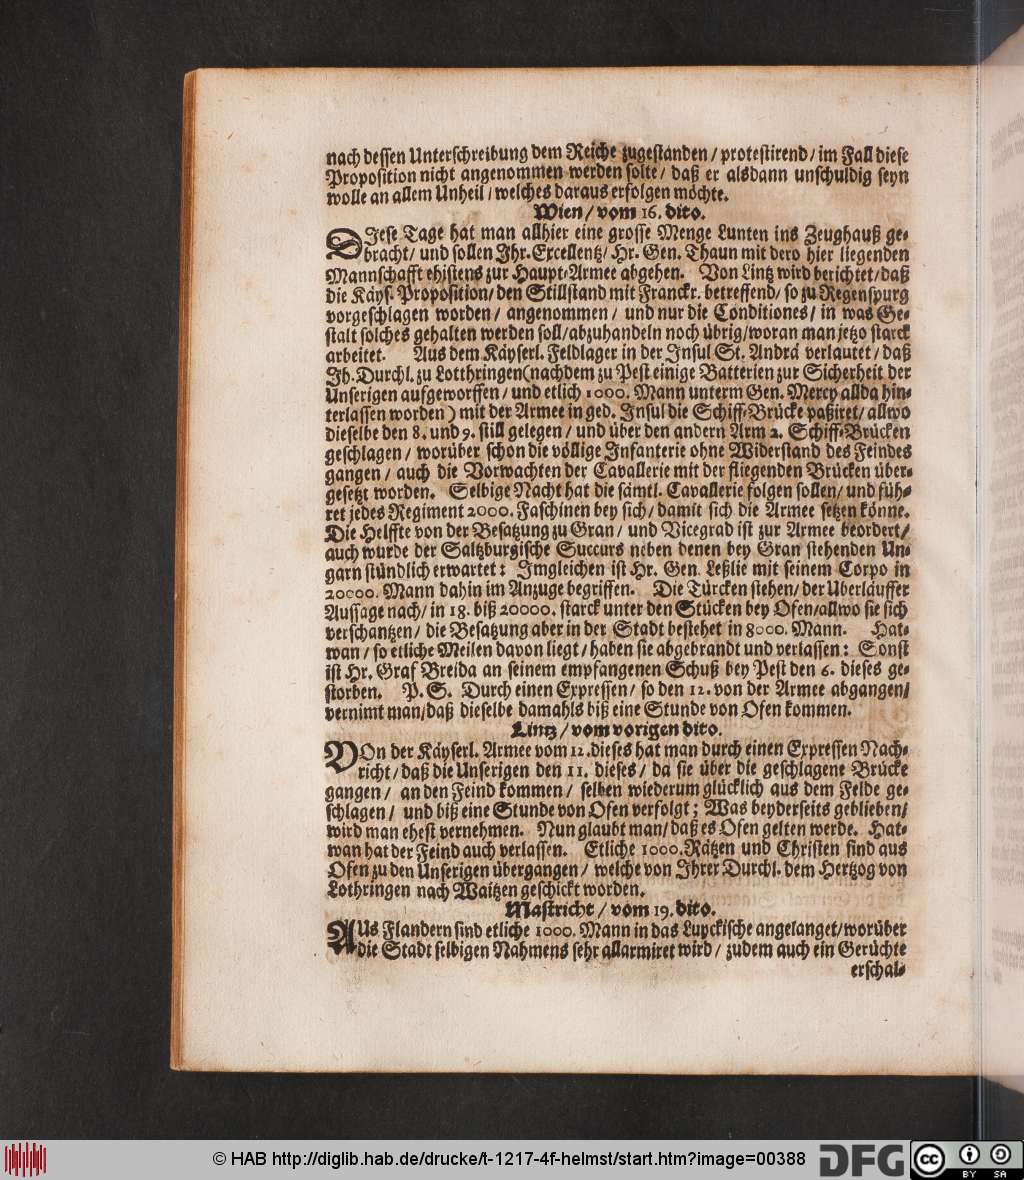 nach dessen Unterschreibung dem Reiche zugestanden / protestirend / im Fall diese
Proposition nicht angenommen werden solte / daß er alsdann unschuldig seyn
wolle an allem Unheil / welches daraus erfolgen möchte.
Wien / vom 16. dito.
DIese Tage hat man allhier eine grosse Menge Lunten ins Zeughauß ge-
bracht / und sollen Ihr. Excellentz / Hr. Gen. Thaun mit dero hier liegenden
Mannschafft ehistens zur Haupt-Armee abgehen. Von Lintz wird berichtet / daß
die Käys. Proposition / den Stillstand mit Franckr. betreffend / so zu Regenspurg
vorgeschlagen worden / angenommen / und nur die Conditiones / in was Ge-
stalt solches gehalten werden soll / abzuhandeln noch übrig / woran man jetzo starck
arbeitet. Aus dem Käyserl. Feldlager in der Insul St. Andrä verlautet / daß
Jh. Durchl. zu Lotthringen (nachdem zu Pest einige Batterien zur Sicherheit der
Unserigen aufgeworffen / und etlich 1000. Mann unterm Gen. Mercy allda hin-
terlassen worden) mit der Armee in ged. Insul die Schiff-Brücke paßiret / allwo
dieselbe den 8. und 9. still gelegen / und über den andern Arm 2. Schiff-Brücken
geschlagen / worüber schon die völlige Infanterie ohne Widerstand des Feindes
gangen / auch die Vorwachten der Cavallerie mit der fliegenden Brücken über-
gesetzt worden. Selbige Nacht hat die sämtl. Cavallerie folgen sollen / und füh-
ret jedes Regiment 2000. Faschinen bey sich / damit sich die Armee setzen könne.
Die Helffte von der Besatzung zu Gran / und Vicegrad ist zur Armee beordert /
auch wurde der Saltzburgische Succurs neben denen bey Gran stehenden Un-
garn stündlich erwartet: Imgleichen ist Hr. Gen. Leßlie mit seinem Corpo in
20000. Mann dahin im Anzuge begriffen. Die Türcken stehen / der Uberläuffer
Aussage nach / in 18. biß 20000. starck unter den Stücken bey Ofen / allwo sie sich
verschantzen / die Besatzung aber in der Stadt bestehet in 8000. Mann. Hat-
wan / so etliche Meilen davon liegt / haben sie abgebrandt und verlassen: Sonst
ist Hr. Graf Breida an seinem empfangenen Schuß bey Pest den 6. dieses ge-
storben. P. S. Durch einen Expressen / so den 12. von der Armee abgangen /
vernimt man / daß dieselbe damahls biß eine Stunde von Ofen kommen.
Lintz / vom vorigen dito.
VOn der Käyserl. Armee vom 12. dieses hat man durch einen Expressen Nach-
richt / daß die Unserigen den 11. dieses / da sie über die geschlagene Brücke
gangen / an den Feind kommen / selben wiederum glücklich aus dem Felde ge-
schlagen / und biß eine Stunde von Ofen verfolgt; Was beyderseits geblieben /
wird man ehest vernehmen. Nun glaubt man / daß es Ofen gelten werde. Hat-
wan hat der Feind auch verlassen. Etliche 1000. Rätzen und Christen sind aus
Ofen zu den Unserigen übergangen / welche von Ihrer Durchl. dem Hertzog von
Lothringen nach Waitzen geschickt worden.
Mastricht / vom 19. dito.
AUs Flandern sind etliche 1000. Mann in das Luyckische angelanget / worüber
die Stadt selbigen Nahmens sehr allarmiret wird / zudem auch ein Gerüchte
erschal-
© HAB http://diglib.hab.de/drucke/t-1217-4f-helmst/start.htm?image=00388
DFG
cc
BY SA